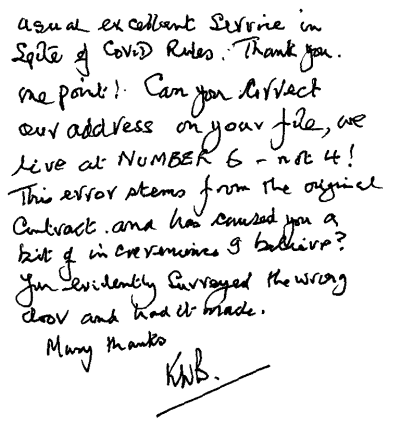 usual excellent Service in
Spite of Covid Rules. Thank you.
one point! Can you correct
our address on your file, we
live at NUMBER 6 - not 4!
This error stems from the original
Contract. and has caused you a
bit of inconvenience I believe?
You evidently Surveyed the wrong
door and had it made.
Many thanks
KWB.